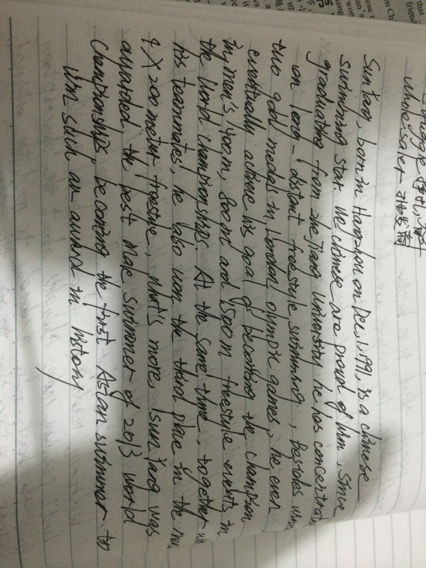 wholesaler 批发商
Sun Yang, born in Hanzhou on Dec.1.1991, is a chinese
swimming star We chinese are proud of him. Since
graduating from zhejiang university he has concentra
on long-distant freestyle swimming, Besides
two gold medals in London olympic games, he even
eventually achieve his goal of becoming the champion
in men's 400m, 800m and 1500m freestyle events in
the World Championships At the same time, together
his teammates, he also won the third place in the
4X200 meter freestyle, What's more, Sun Yang was
awarded the best male swimmer of 2013 world
Championships, becoming the first Asian swimmer to
win such an award in history